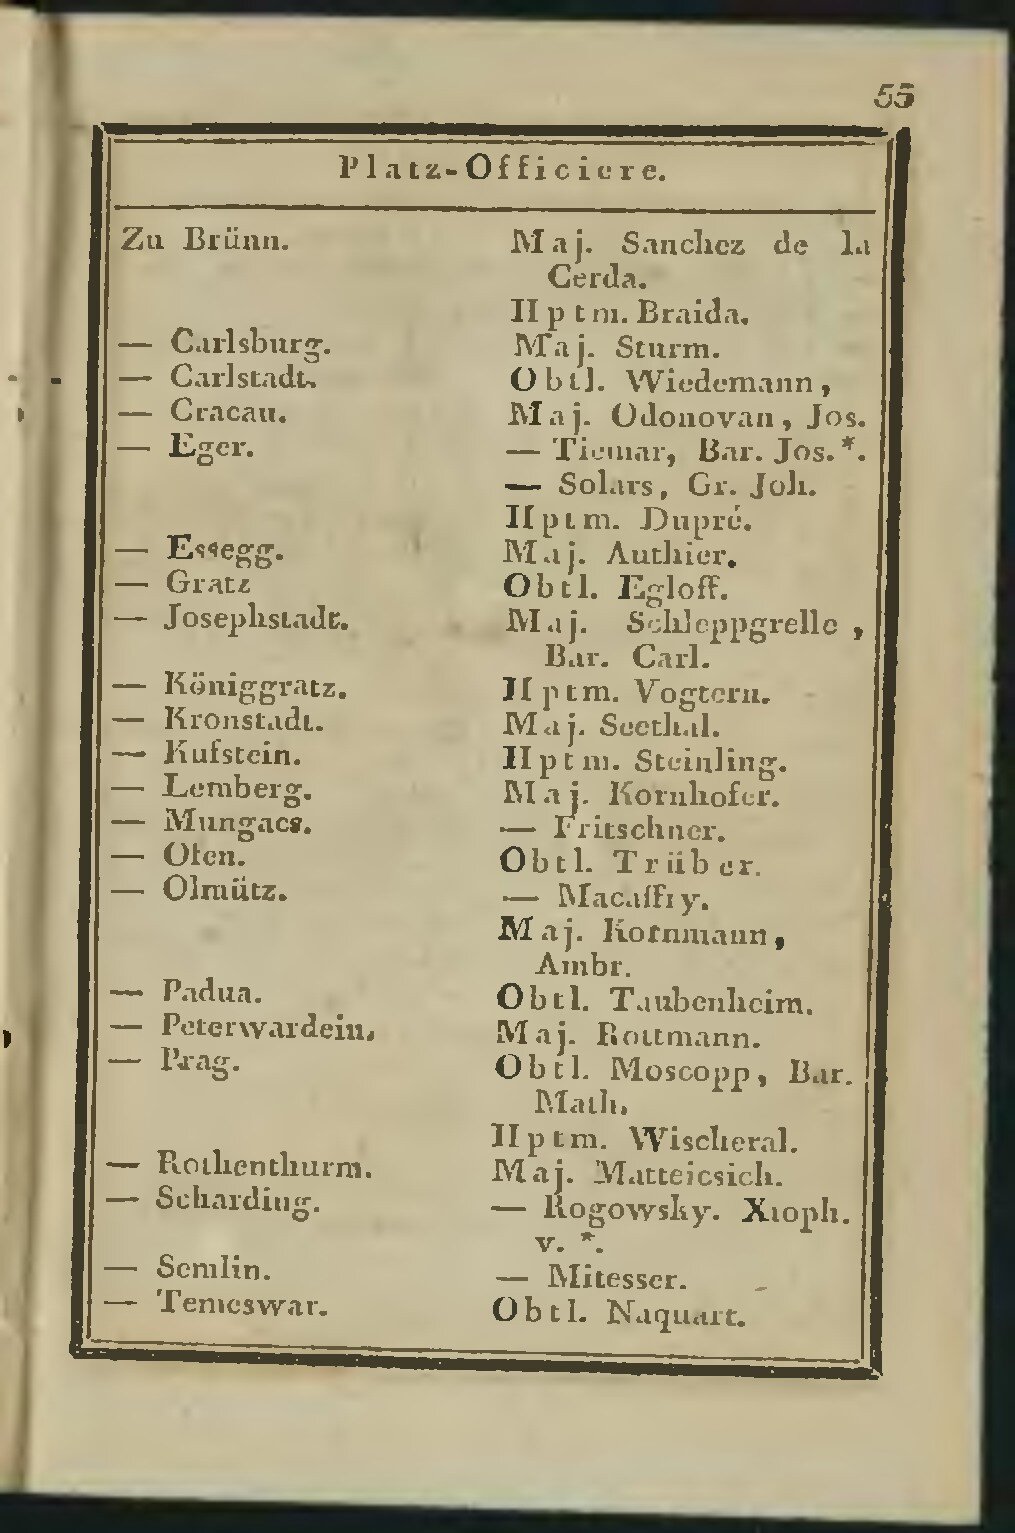 55
Platz-Officiere.
Zu Brünn. Maj. Sanchez de la
Cerda.
Hptm. Braida.
— Carlsburg. Maj. Sturm.
— Carlstadt. Obtl. Wiedemann,
— Cracau. Maj. Odonovan, Jos.
— Eger. — Tiemar, Bar. Jos. *.
— Solars, Gr. Joh.
Hptm. Dupré.
— Essegg. Maj. Authier.
— Gratz Obtl. Egloff.
— Josephstadt. Maj. Schleppgrelle,
Bar. Carl.
— Königgratz. Hptm. Vogtern.
— Kronstadt. Maj. Seethal.
— Kufstein. Hptm. Steinling.
— Lemberg. Maj. Kornhofer.
— Mungacs. — Fritschner.
— Ofen. Obtl. Trüber.
— Olmütz. — Macaffry.
Maj. Kornmann,
Ambr.
— Padua. Obtl. Taubenheim.
— Peterwardein. Maj. Rottmann.
— Prag. Obtl. Moscopp, Bar.
Math.
Hptm. Wischeral.
— Rothenthurm. Maj. Matteicsich.
— Scharding. — Rogowsky. Xtoph.
v. *.
— Semlin. — Mitesser.
— Temeswar. Obtl. Naquart.